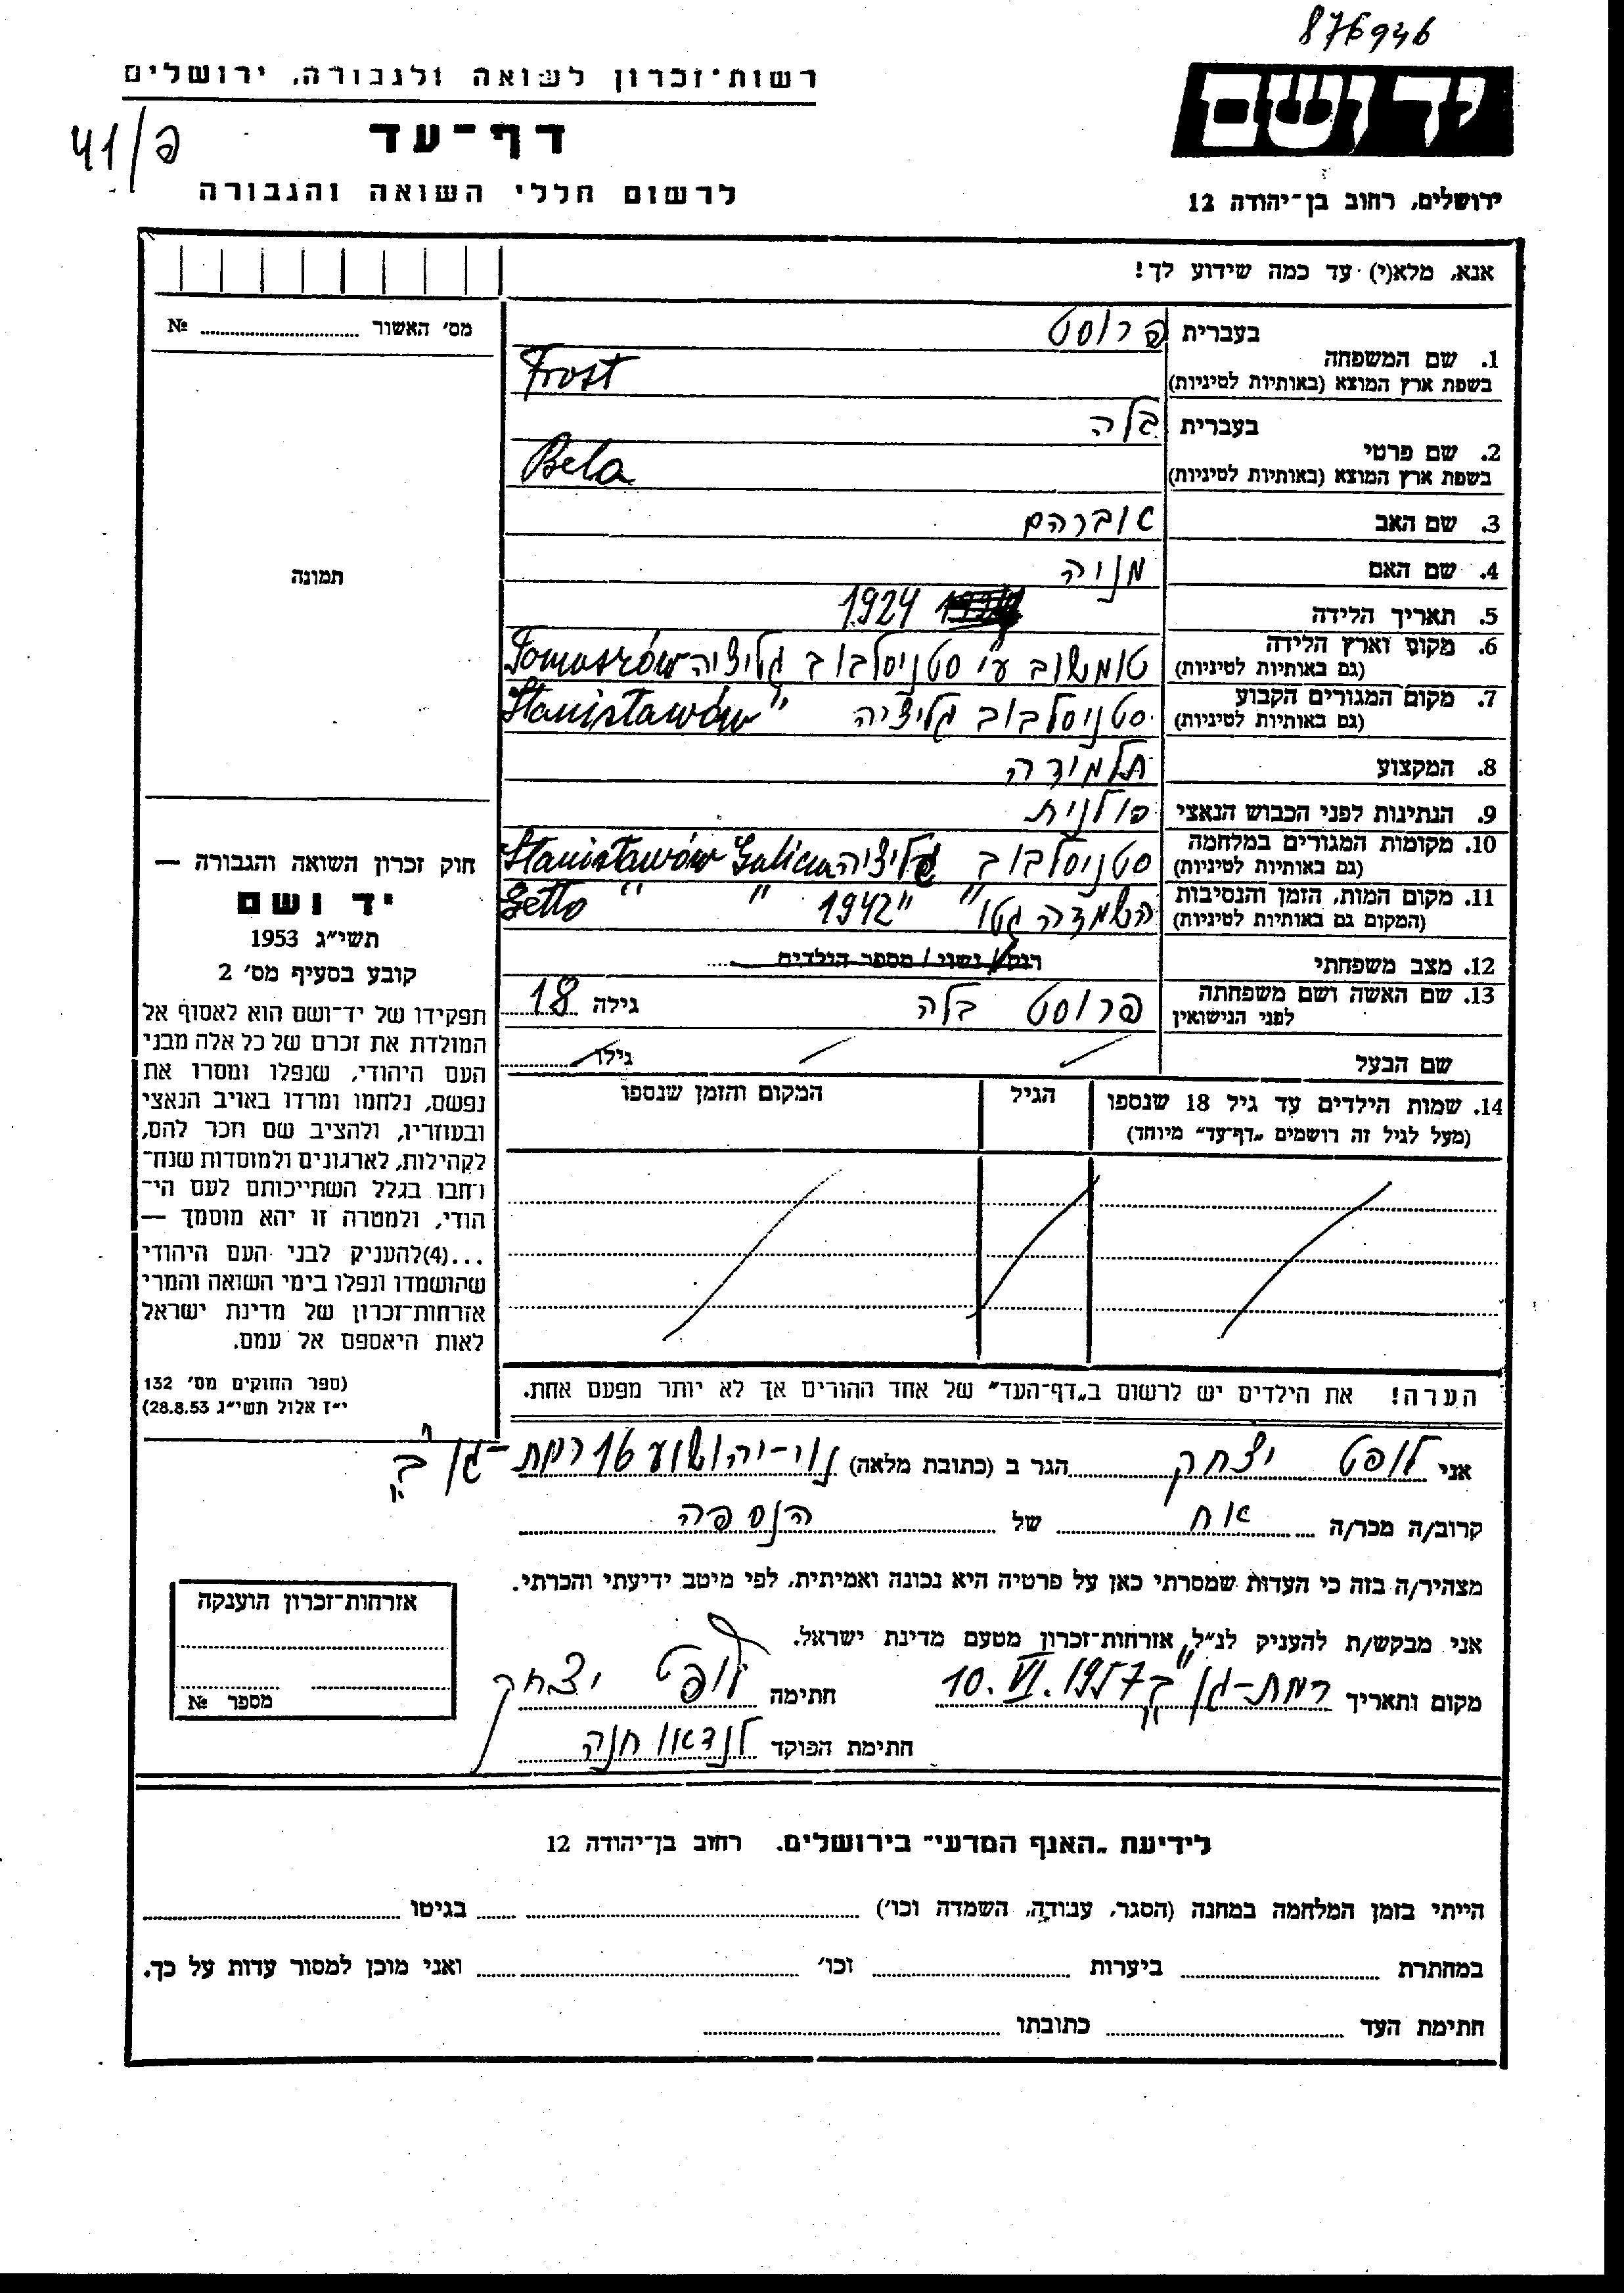 876946
רשות־זכרון לשואה ולגבורה, ירושלים
יד ושם
41/פ
דף־עד
לרשום חללי השואה והגבורה
ירושלים, רחוב בן־יהודה 12
אנא, מלא(י) עד כמה שידוע לך!
מס׳ האשור № 
1. שם המשפחה
בעברית פרוסט
בשפת ארץ המוצא (באותיות לטיניות) Frost
2. שם פרטי
בעברית בלה
בשפת ארץ המוצא (באותיות לטיניות) Bela
3. שם האב אוברהם
4. שם האם מניה
תמונה
5. תאריך הלידה 1924
6. מקום וארץ הלידה (גם באותיות לטיניות) טומשוב ע״י סטניסלבוב גליציה Tomaszów
7. מקום המגורים הקבוע (גם באותיות לטיניות) סטניסלבוב גליציה " Stanisławów
8. המקצוע תלמידה
9. הנתינות לפני הכבוש הנאצי פולנית
10. מקומות המגורים במלחמה (גם באותיות לטיניות) סטניסלבוב גליציה Stanisławów Galicia
11. מקום המות, הזמן והנסיבות (המקום גם באותיות לטיניות) השמדה גטו " " 1942 " " Getto
12. מצב משפחתי רווק / נשוי / מספר הילדים
13. שם האשה ושם משפחתה לפני הנישואין פרוסט בלה גילה 18
שם הבעל גילו
14. שמות הילדים עד גיל 18 שנספו
(מעל לגיל זה רושמים „דף־עד״ מיוחד)
הגיל
המקום והזמן שנספו
הערה! את הילדים יש לרשום ב„דף־העד״ של אחד ההורים אך לא יותר מפעם אחת.
חוק זכרון השואה והגבורה —
יד ושם
תשי״ג 1953
קובע בסעיף מס׳ 2
תפקידו של יד־ושם הוא לאסוף אל
המולדת את זכרם של כל אלה מבני
העם היהודי, שנפלו ומסרו את
נפשם, נלחמו ומרדו באויב הנאצי
ובעוזריו, ולהציב שם וזכר להם,
לקהילות, לארגונים ולמוסדות שנח־
רבו בגלל השתייכותם לעם הי־
הודי, ולמטרה זו יהא מוסמך —
...(4) להעניק לבני העם היהודי
שהושמדו ונפלו בימי השואה והמרי
אזרחות־זכרון של מדינת ישראל
לאות היאספם אל עמם.
(ספר החוקים מס׳ 132
י״ז אלול תשי״ג 28.8.53)
אני לופט יצחק הגר ב (כתובת מלאה) נוי־יהושע 16 רמת־גן
קרוב/ה מכר/ה אח של הנספה
מצהיר/ה בזה כי העדות שמסרתי כאן על פרטיה היא נכונה ואמיתית, לפי מיטב ידיעתי והכרתי.
אני מבקש/ת להעניק לנ״ל, אזרחות־זכרון מטעם מדינת ישראל.
מקום ותאריך רמת־גן 10.VI.1957 חתימה לופט יצחק
חתימת הפוקד לנדאו חנה
אזרחות־זכרון הוענקה
מספר №
לידיעת „האגף המדעי״ בירושלים. רחוב בן־יהודה 12
הייתי בזמן המלחמה במחנה (הסגר, עבודה, השמדה וכו׳) בגיטו
במחתרת ביערות וכו׳ ואני מוכן למסור עדות על כך.
חתימת העד כתובתו